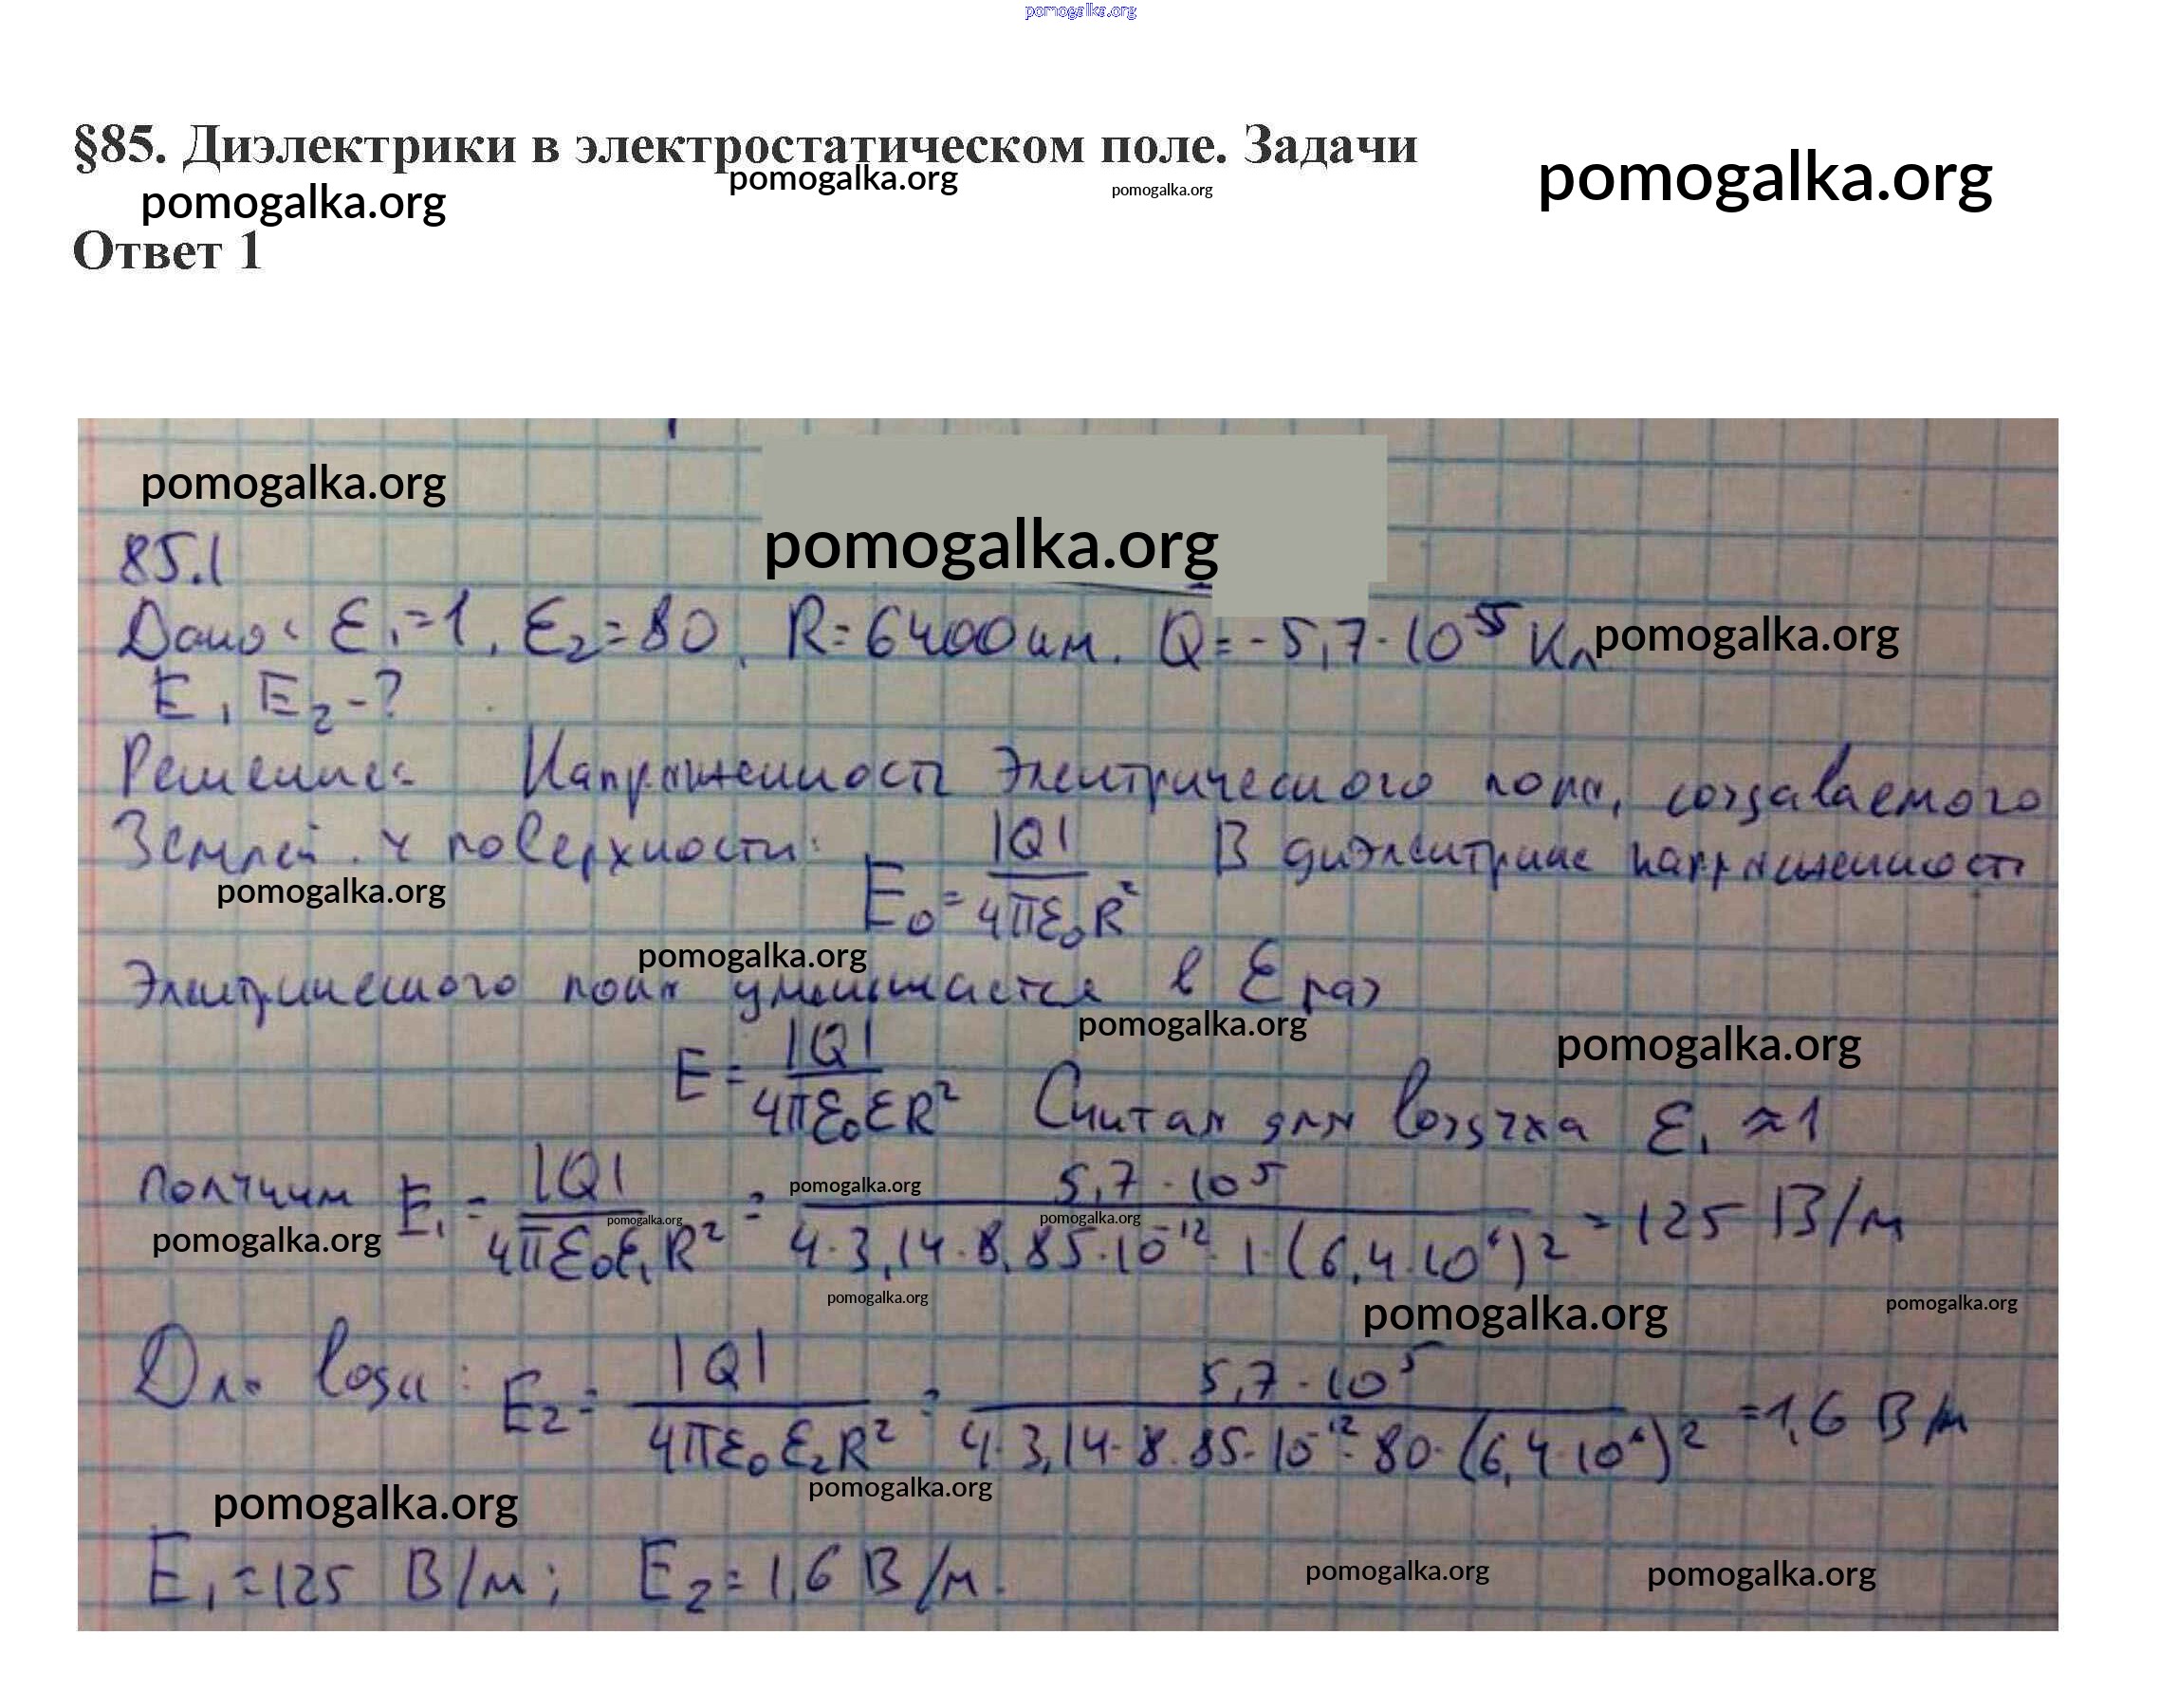 pomogalka.org
§85. Диэлектрики в электростатическом поле. Задачи
pomogalka.org pomogalka.org pomogalka.org pomogalka.org
Ответ 1
pomogalka.org
pomogalka.org
85.1
Дано: ε₁=1, ε₂=80, R=6400км. Q=-5,7·10⁵ Кл pomogalka.org
E, E₂-?
Решение: Напряженность Электрического поля, создаваемого
Землей у поверхности: E₀=|Q|/4πε₀R² В диэлектрике напряженность
pomogalka.org
pomogalka.org
Электрического поля уменьшается в ε раз
pomogalka.org pomogalka.org
E=|Q|/4πε₀εR² Считая для воздуха ε₁≈1
получим E₁=|Q|/4πε₀ε₁R²=5,7·10⁵/4·3,14·8,85·10⁻¹²·1·(6,4·10⁶)²=125 В/м
pomogalka.org
pomogalka.org pomogalka.org
pomogalka.org
pomogalka.org pomogalka.org pomogalka.org
Для воды: E₂=|Q|/4πε₀ε₂R²=5,7·10⁵/4·3,14·8.85·10⁻¹²·80·(6,4·10⁶)²=1,6 В/м
pomogalka.org pomogalka.org
E₁=125 В/м; E₂=1,6 В/м.
pomogalka.org pomogalka.org